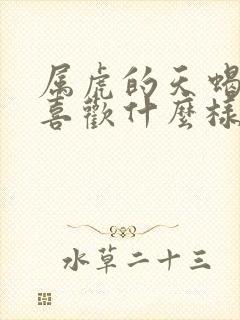 属虎的天蝎
喜歡什麼樣
水草二十三